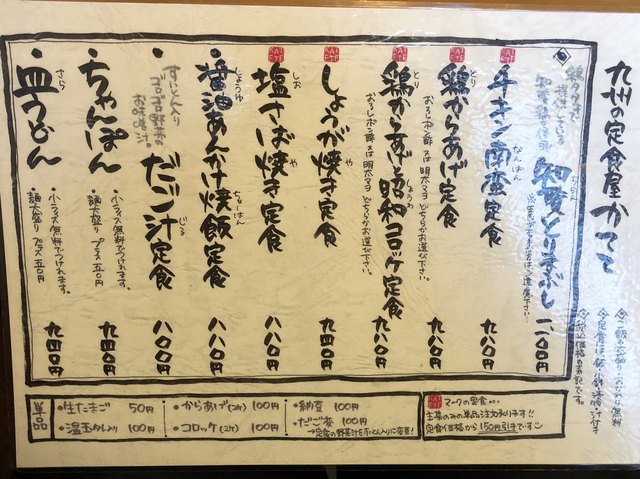 九州の定食屋かてて
◇ご飯の大盛り、おかわり無料
◇税込価格の表記です。
とり手ぶし 一、一〇〇円
チキン南蛮定食 九八〇円
なんばん
鶏からあげ定食 九八〇円
とり
おろしポン酢 又は 明太マヨ どちらかお選び下さい。
鶏からあげと昭和コロッケ定食 九八〇円
とり
しょうわ
おろしポン酢 又は 明太マヨ どちらかお選び下さい。
しょうが焼き定食 九四〇円
や
塩さば焼き定食 八八〇円
しお
や
醤油あんかけ焼飯定食 八八〇円
しょうゆ
ちゃーはん
すいとん入り
ゴロゴロ野菜の
お味噌汁。
だご汁定食 八八〇円
じる
・ちゃんぽん 九四〇円
・小ライス無料でつけれます。
・麺大盛り プラス五〇円
・皿うどん 九四〇円
さら
・小ライス無料でつけれます。
・麺大盛り プラス五〇円
単品
・生たまご 50円
・温玉 100円
・からあげ(2ケ) 100円
・コロッケ(2ケ) 100円
・納豆 100円
・だご変 100円
→定食の野菜汁をすいとん入りに変更!
マークの定食...
主菜のみの単品注文承ります!!
定食価格から150円引きです